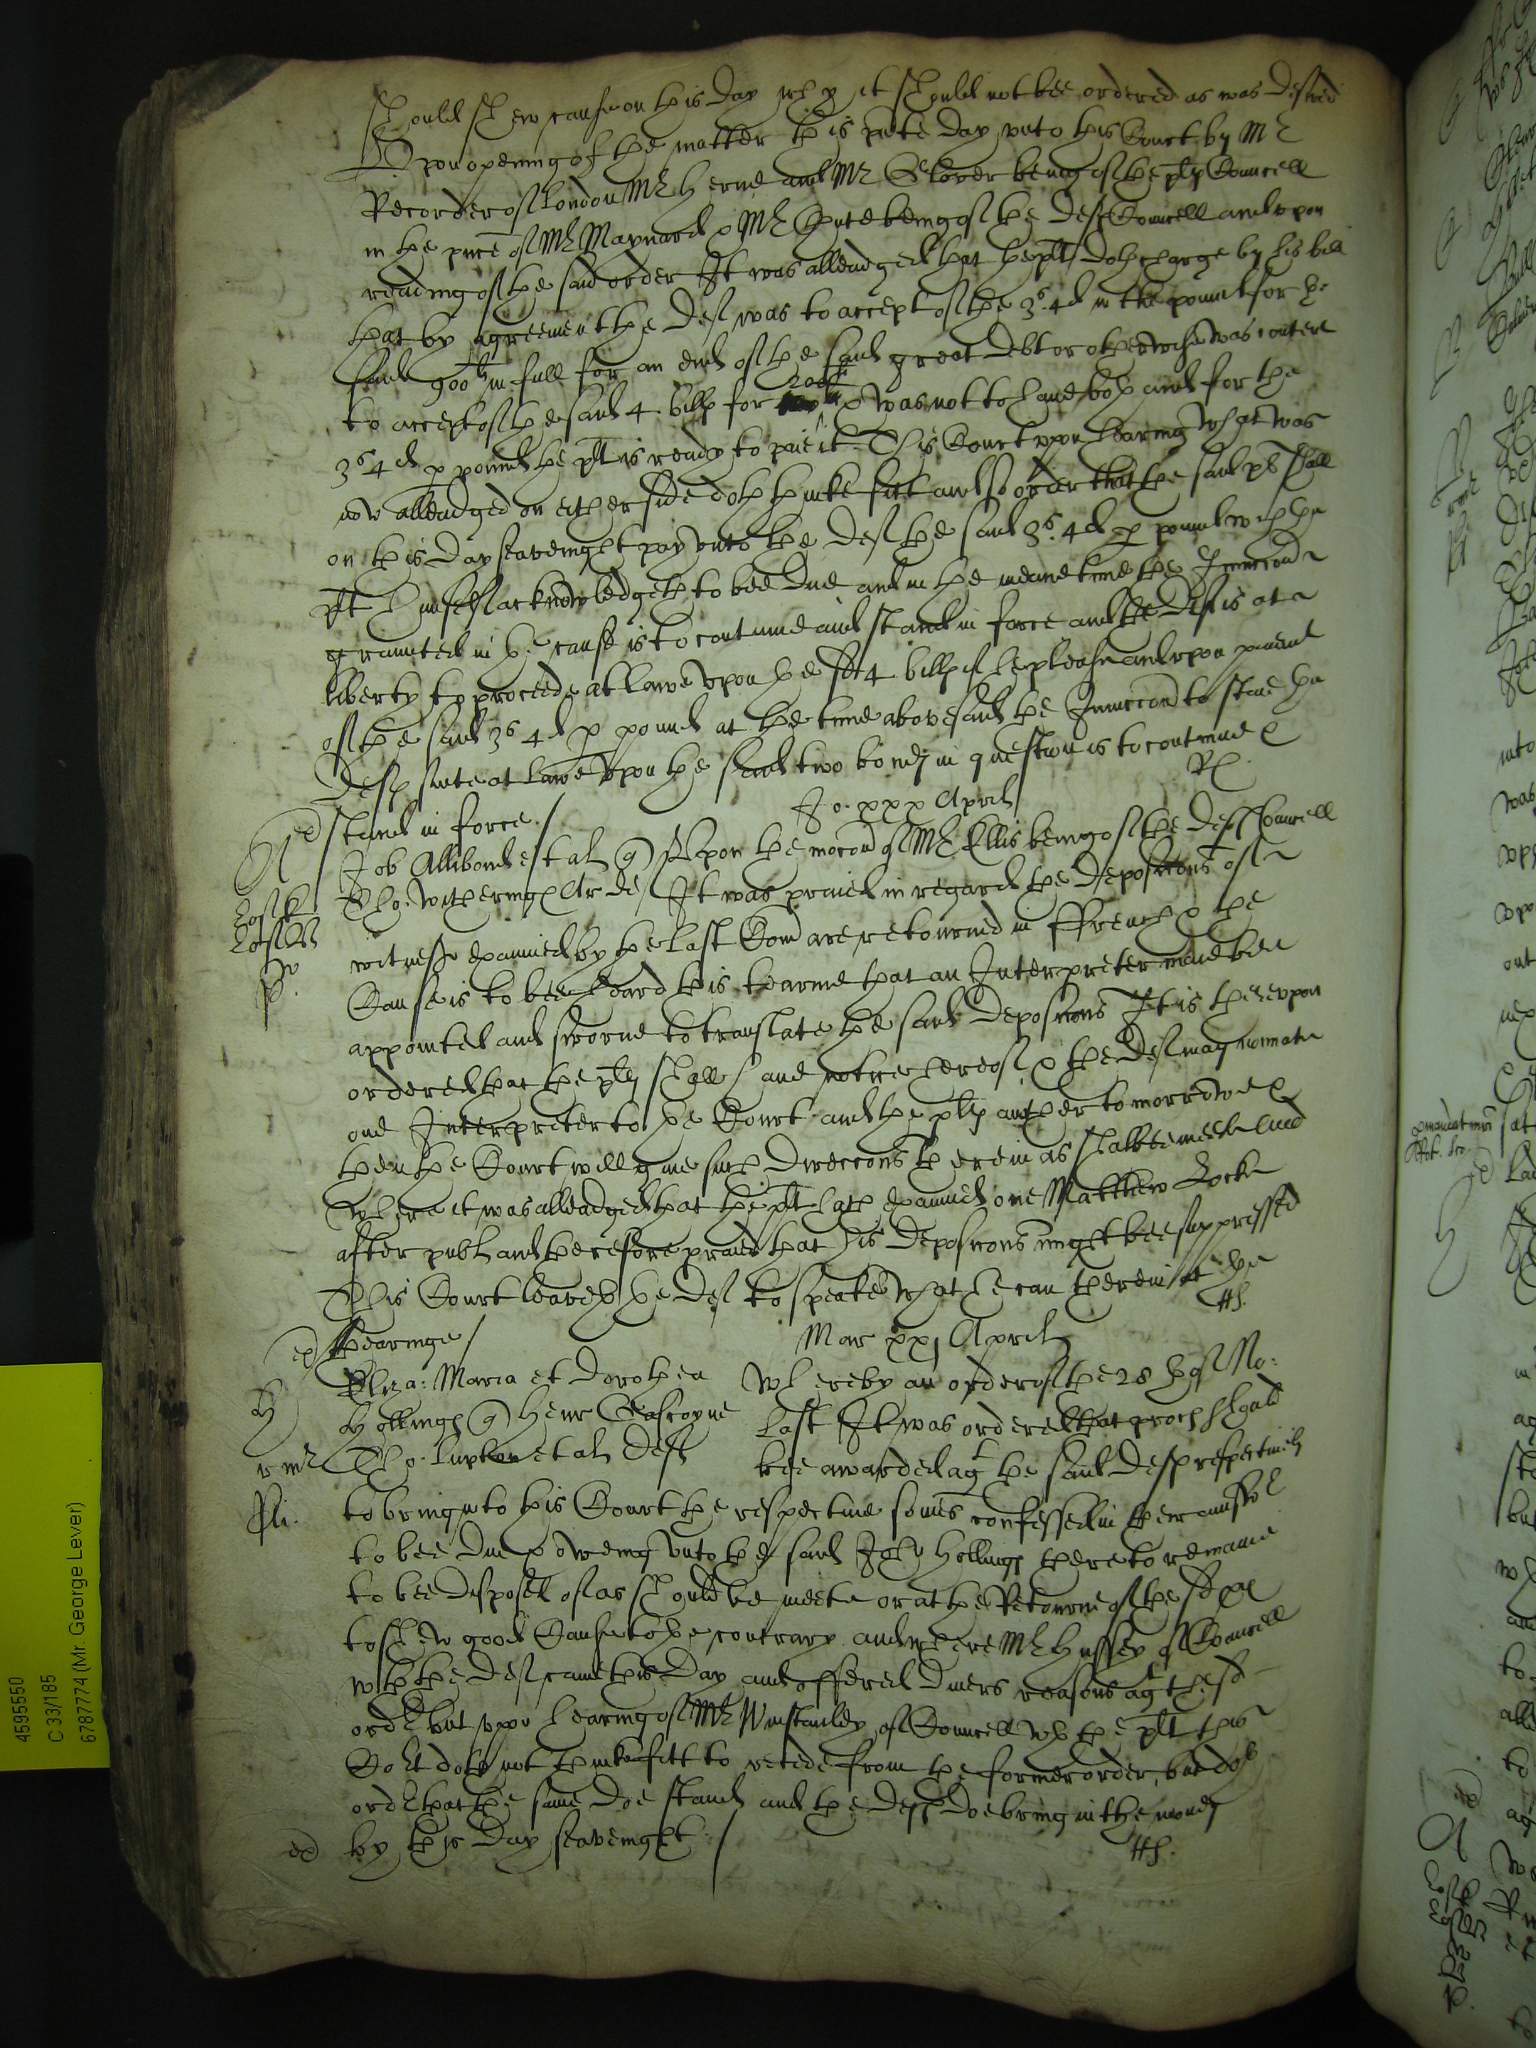 should shew cause on this day why it should not bee ordered as was desired
Upon opening of the matter this pnte day unto this Court by Mr
Recorder of London Mr Herne and Mr Glover being of the plts Councell
in the pnce of Mr Maynard & Mr Chute being of the defts Councell and upon
reading of the said order It was alleadged that the plt doth charge by his bill
that by agreement the deft was to accept of the 3s. 4d in the pound for the
said 900li in full for an end of the said great debt or otherwise was content
to accept of the said 4 bills for 200li & was not to have both and for the
3s 4d p pound the plt is ready to paie it. This Court upon hearing what was
now alleadged on either side doth thinke fitt and so order that the said plt shall
on this day seavenight pay unto the deft the said 3s. 4d p pound wch the
plt himself acknowledgeth to bee due and in the meane time the Iniuccon
graunted in the cause is to continue and stand in force and the deft is at
liberty to proceede at lawe upon the sd 4 bills if he please and upon paiement
of the said 3s 4d p pound at the time abovesaid the Iniuccon to staie the
defts suite at lawe upon the said two bonds in question is to continue &
stand in force./
Jo. xxx April
Job Allibond et al Upon the mocon of Mr Ellis being of the defts Councell
Tho: Witherings Ar de It was praied in regard the deposicons of
witnesses examined by the last Comn are retourned in ffrench & the
Cause is to bee heard this tearme that an Interpreter maie bee
appointed and sworne to translate the said deposicons It is thereupon
ordered that the plts shall have notice hereof & the deft may nominate
one Interpreter to the Court and the plts another to morrowe &
then the Court will give such direccons therein as shalbee meete And
Where it was alleadged that the plt hath examined one Matthew Lock
after publ and therefore praied that his deposicons might bee suppressed
This Court leaveth the deft to speake what he can therein at the
hearinge /
Mar xxj April
Eliza: Maria et Dorothea Whereby an order of the 28 th of No:
Hollings Henr Gascoyne last It was ordered that proces should
Tho: Lupton et al defts bee awarded agt the said defts respectively
to bring into this Court the respective somes confessed in their answers
to bee due & oweing unto the said John Hollings there to remaine
to bee disposed of as should be meete or at the Retourne of the sd
to shew good Cause to the contrary and where Mr Hussey of Councell
wth the deft came this day and offered divers reasons agt the sd
ordr but upon hearing of Mr Winstanley of Councell wth the plt this
Cort doth not thinke fitt to recede from the former order, but doth
ordr that the same doe stand and the defts doe bring in the moneys
by this day seavenight /
4595550
C 33/185
6787774 (Mr. George Lever)